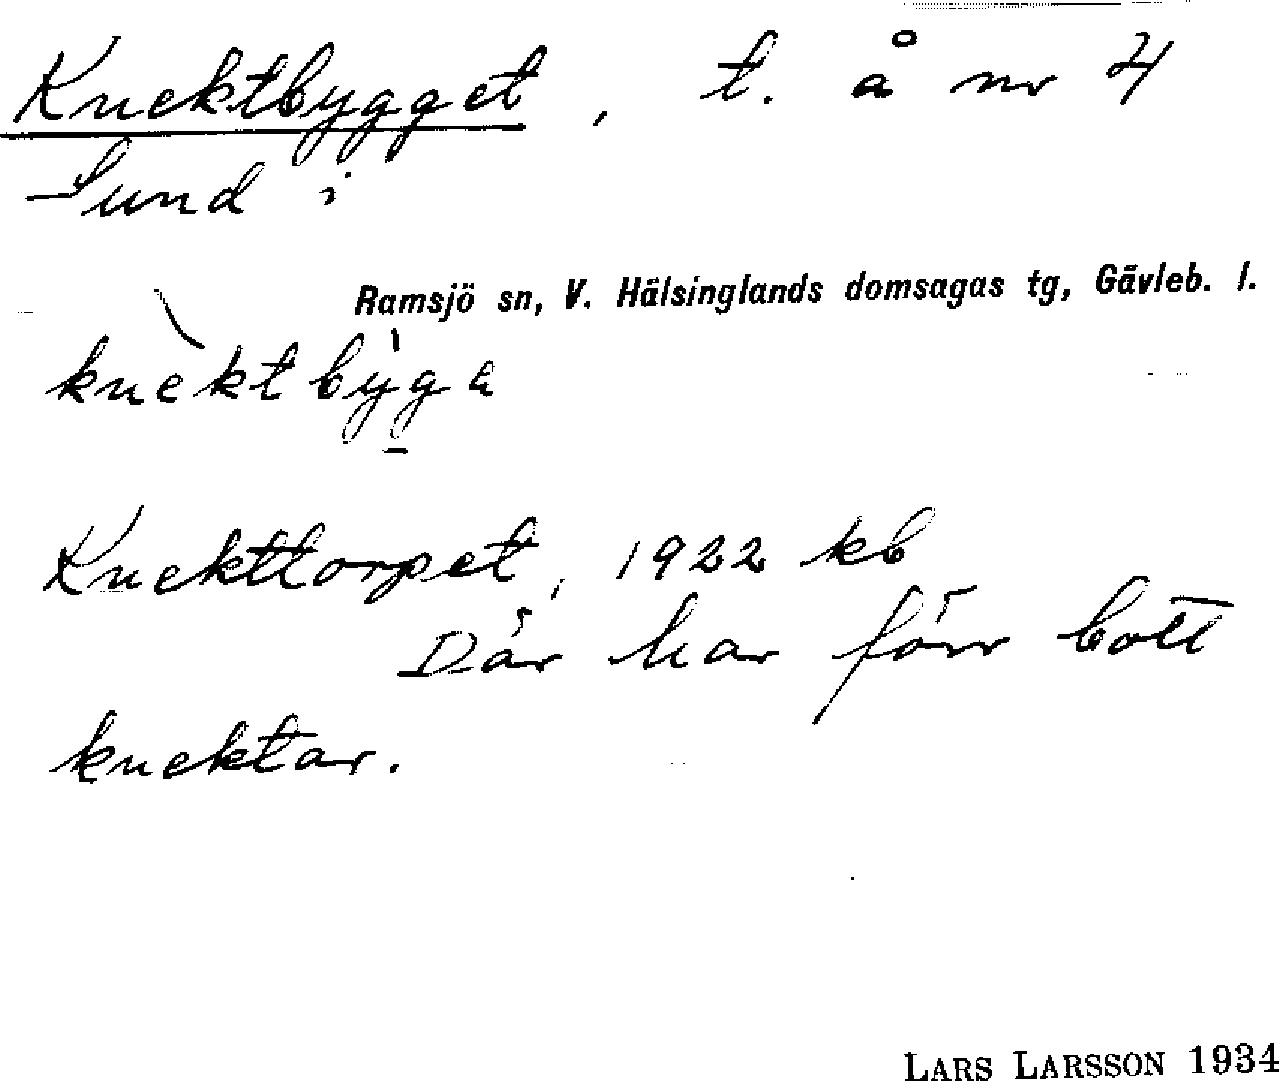 Knektbygget, t. å nr 4
Sund i
Ramsjö sn, V. Hälsinglands domsagas tg, Gävleb. l.
knèktby�l̀ga
Knekttorpet, 1922 kb
Där har förr bott
knektar.
LARS LARSSON 1934